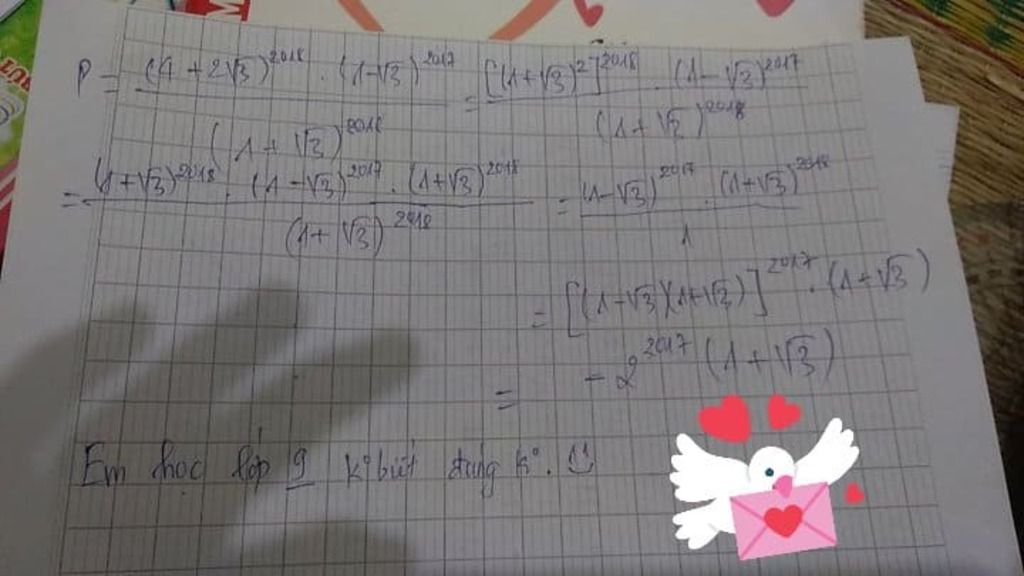 P = (4 + 2√3)^2018 . (1-√3)^2017 / (1 + √3)^2018 = [(1+√3)^2]^2018 . (1-√3)^2017 / (1+√3)^2018
= (1+√3)^2018 . (1-√3)^2017 . (1+√3)^2018 / (1+√3)^2018 = (1-√3)^2017 . (1+√3)^2018 / 1
= [(1-√3)(1+√3)]^2017 . (1+√3)
= -2^2017 (1+√3)
Em học lớp 9 k° biết đúng k°.